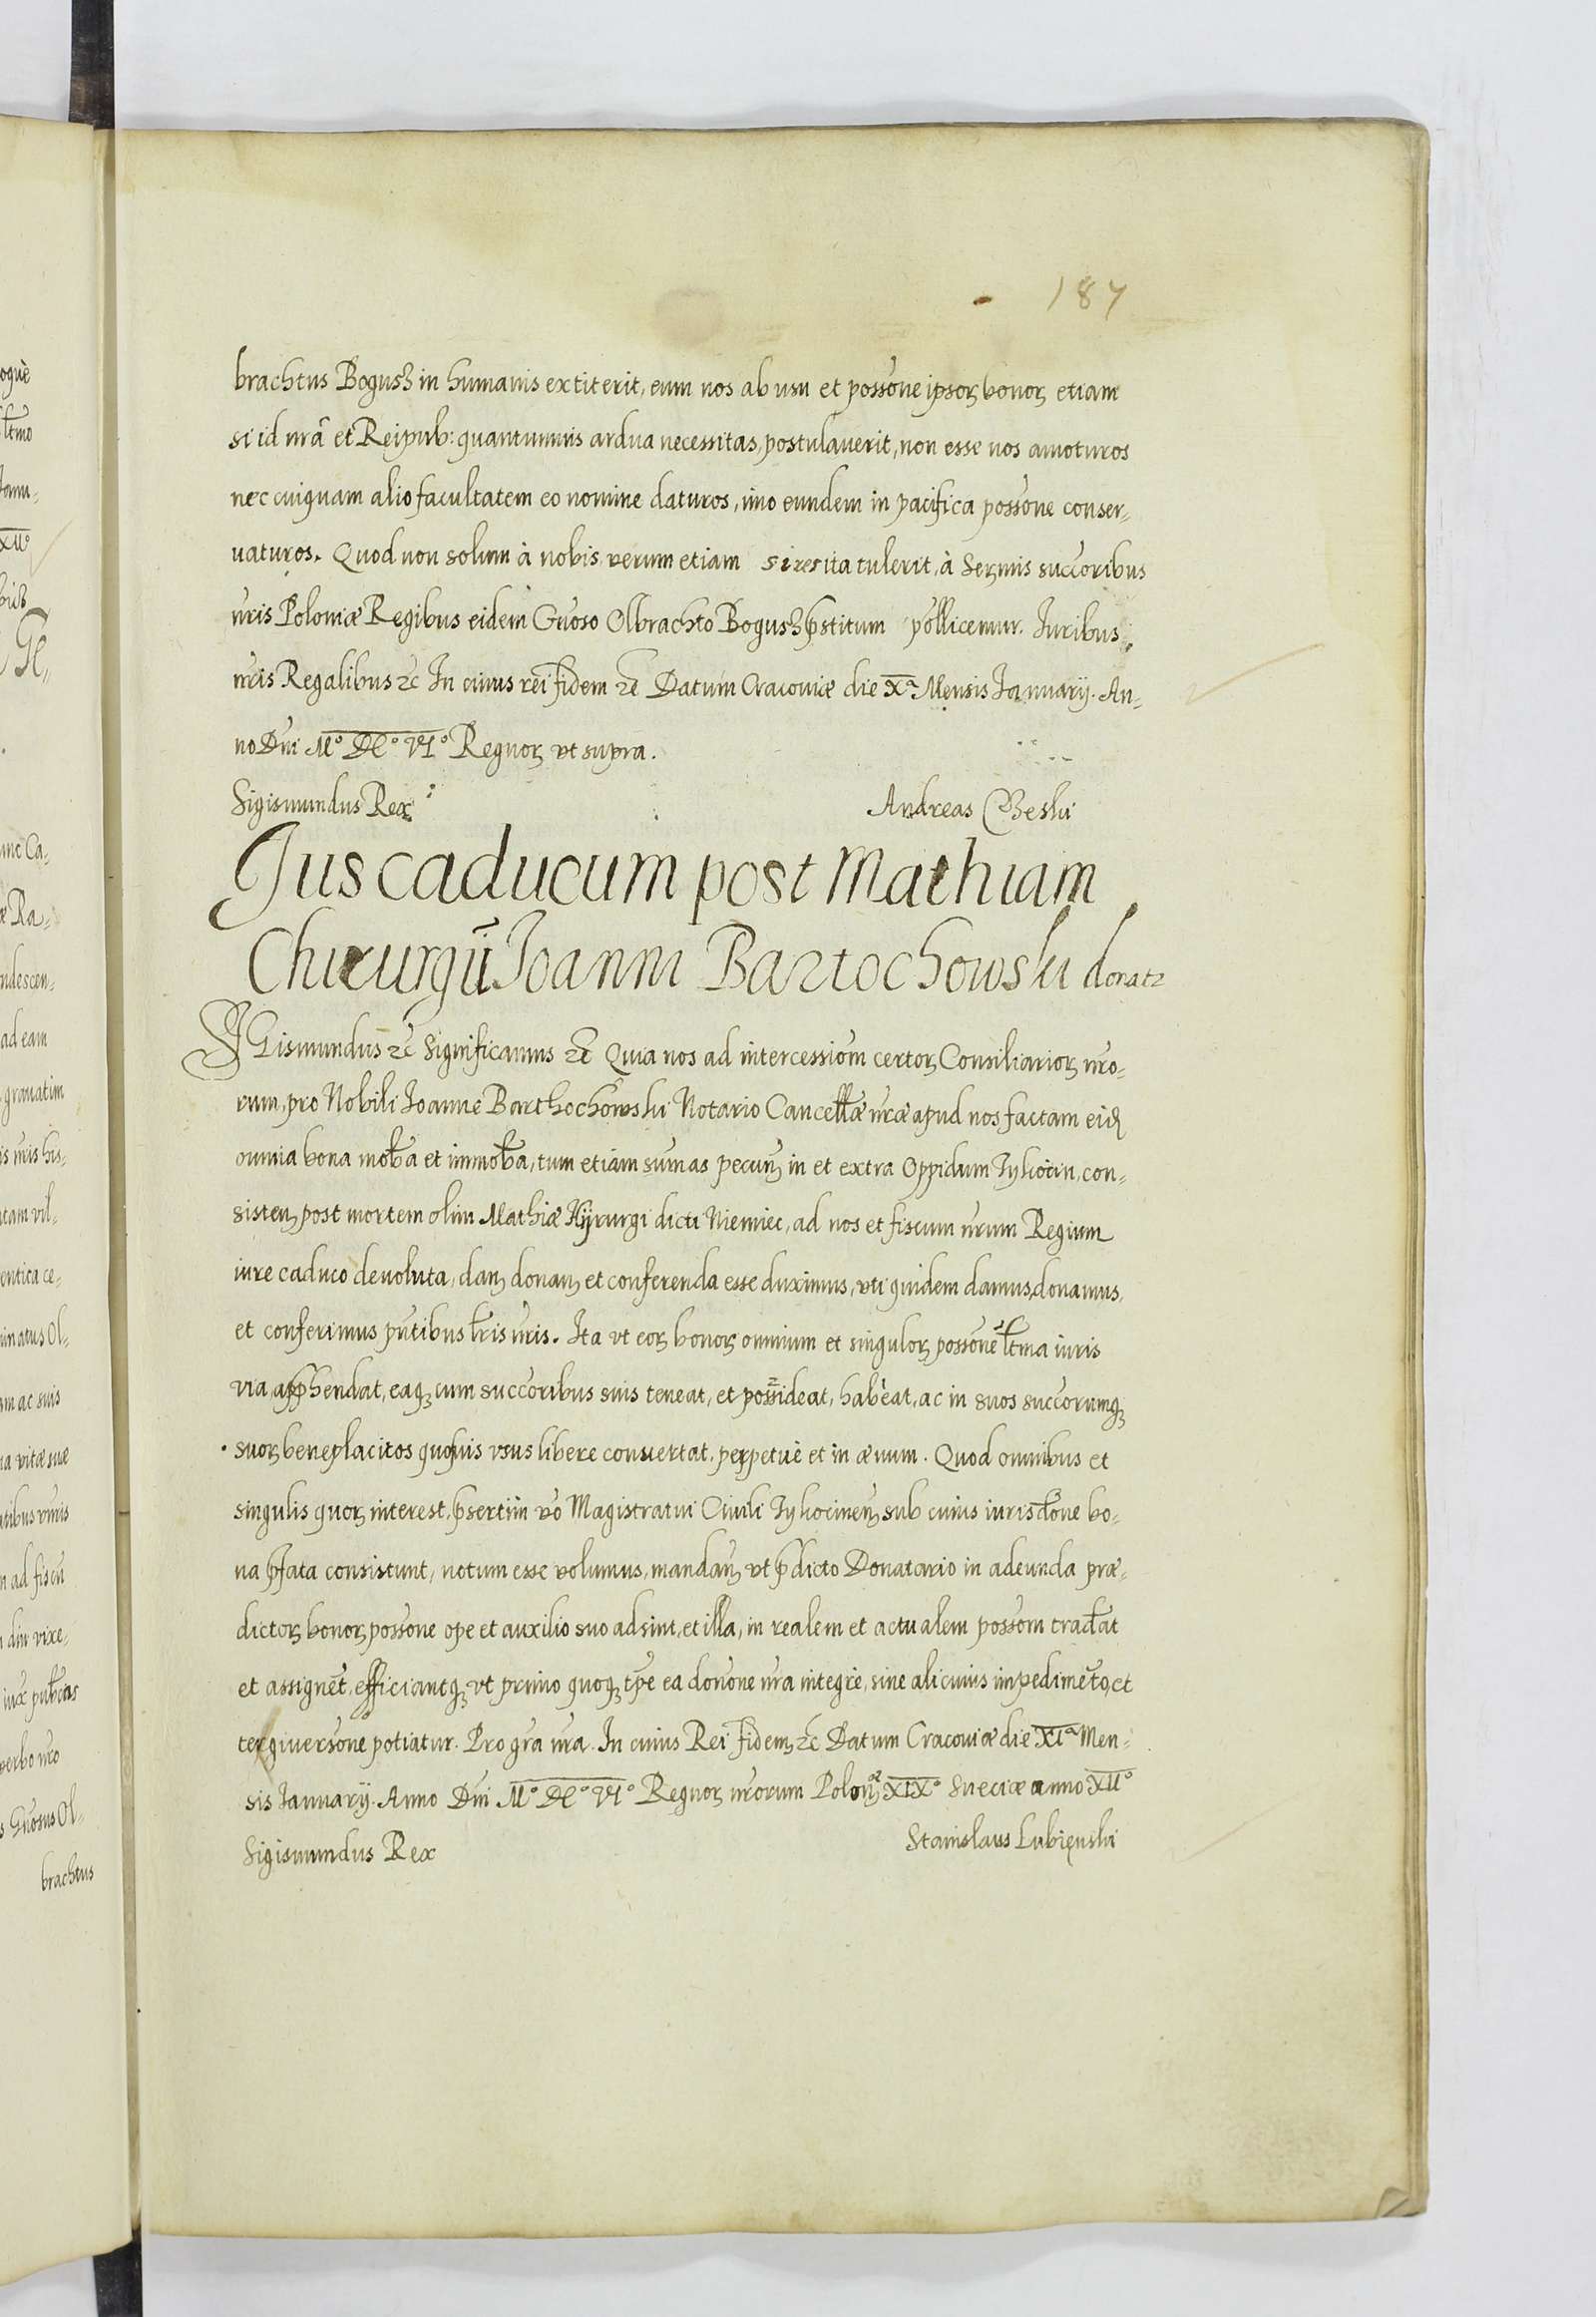 187
brachtus Bogusz in humanis extiterit, eum nos ab usu et possōne ipsorꝫ bonorꝫ etiam
si id nrā et Reipub: quantumuis ardua necessitas, postulauerit, non esse nos amoturos
nec cuiquam alio facultatem eo nomine daturos, imo eundem in pacifica possōne conser-
uaturos. Quod non solum à nobis verum etiam si res ita tulerit, à Sermis succoribus
nris Poloniæ Regibus eidem Gnoso Olbrachto Bogusz p̄stitum pollicemur. Iuribus
nris Regalibus ꝛc In cuius rei fidem ꝛc Datum Cracouiæ die Xª Mensis Ianuarij. An-
no Dni M° DC° VI° Regnorꝫ vt supra.
Sigismundus Rex
Andreas Geski
Jus caducum post Mathiam
Chirurgū Joanni Bartochowski donatꝛ
SIGismundus ꝛc Significamus ꝛc Quia nos ad intercessiom certorꝫ Consiliariorꝫ nro-
rum, pro Nobili Joanne Barthochowski Notario Cancellæ nræ apud nos factam eid
omnia bona mob̄a et immob̄a, tum etiam sum̄as pecunꝫ in et extra Oppidum Tykocin, con-
sistenꝫ post mortem olim Mathiæ Hyrurgi dicti Niemiec, ad nos et fiscum nrum Regium
iure caduco deuoluta, danꝫ donanꝫ et conferenda esse duximus, vti quidem damus, donamus,
et conferimus pntibus lris nris. Ita vt eorꝫ bonorꝫ omnium et singulorꝫ possōnē ltma iuris
via app̄hendat, eaqꝫ cum succoribus suis teneat, et possideat, habeat, ac in suos succorumqꝫ
suorꝫ beneplacitos quosuis vsus libere conuertat, perpetuè et in æuum. Quod omnibus et
singulis quorꝫ interest, p̄sertim vo Magistratui Ciuili Tykocinenꝫ sub cuius iurisdōne bo-
na p̄fata consistunt, notum esse volumus, mandanꝫ vt p̄dicto Donatario in adeunda præ-
dictorꝫ bonorꝫ possōne ope et auxilio suo adsint, et illa, in realem et actualem possom tradat
et assignēt, efficiantqꝫ vt primo quoqꝫ tp̄e ea donōne nra integrè, sine alicuius impedimēto, et
tergiuersōne potiatur. Pro gra nra. In cuius Rei fidem ꝛc Datum Cracouiæ die XIª Men-
sis Ianuarij. Anno Dni M° DC° VI° Regnorꝫ nrorum Polonꝫ XIX° Sueciæ anno XII°
Sigismundus Rex
Stanislaus Lubięnski
brachtus